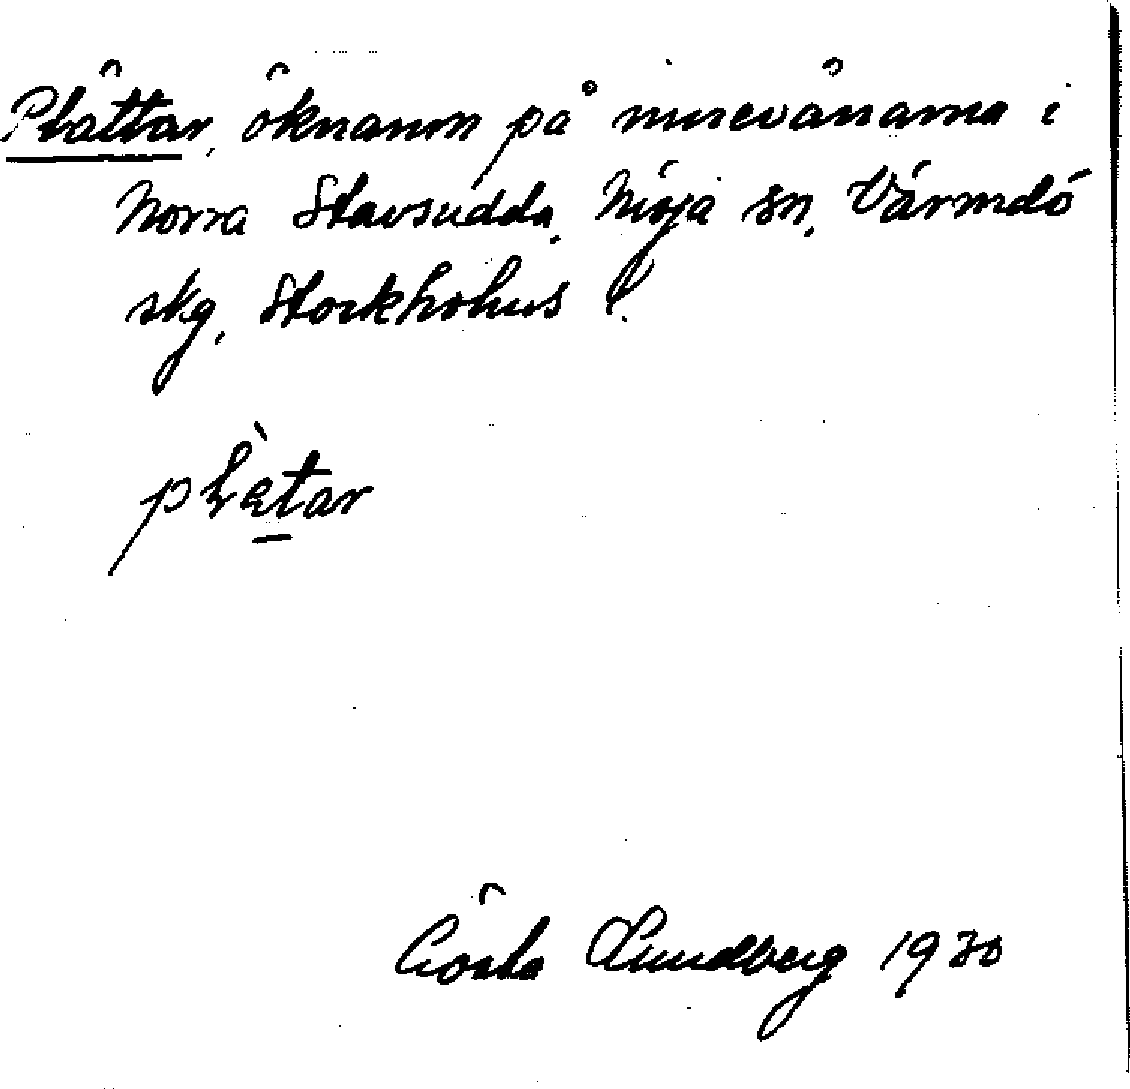 Plättar, öknamn på innevånarna i
Norra Stavsudda, Möja sn, Värmdö
skg, Stockholms l.
plètar
Gösta Lundberg 1930